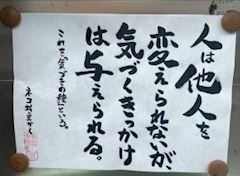 人は他人を
変えられないが、
気づくきっかけ
は与えられる。
これを「気づきの種」という。